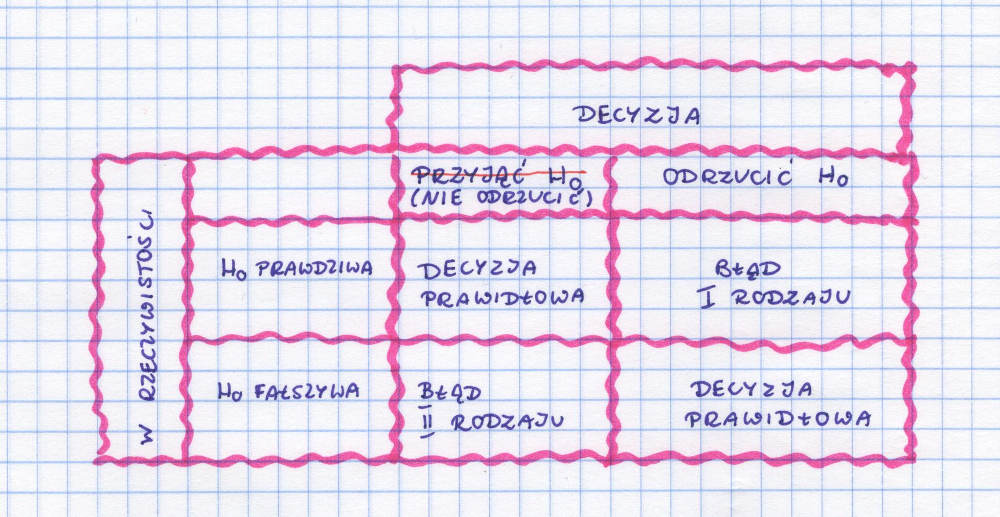 DECYZJA
PRZYJĄĆ H0
(NIE ODRZUCIĆ)
ODRZUCIĆ H0
W RZECZYWISTOŚCI
H0 PRAWDZIWA
DECYZJA
PRAWIDŁOWA
BŁĄD
I RODZAJU
H0 FAŁSZYWA
BŁĄD
II RODZAJU
DECYZJA
PRAWIDŁOWA